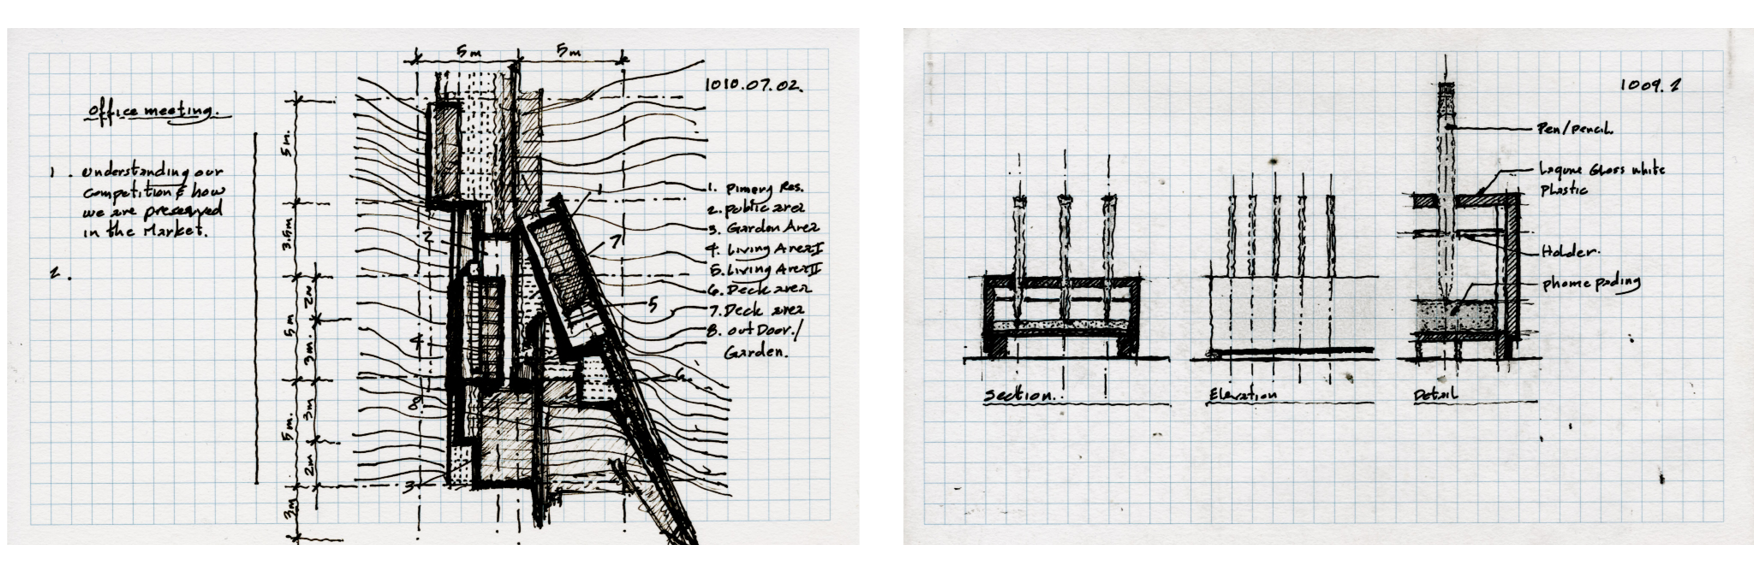 5m 5m
1010.07.02.
Office meeting.
1. Understanding our
Competition & how
we are preserved
in the Market.
2.
5m.
3.5m
5m
2m
3m.
5m.
3m
2m
3m
1
2
7
5
4
6.
8
3
1. Pimery Res.
2. public area
3. Garden Area
4. Living Area I
5. Living Area II
6. Deck area
7. Deck area
8. outDoor./
Garden.
1009.2
Pen/pencil
Lagune Gloss white
Plastic
Holder.
phome pading
Section.
Elevation
Detail